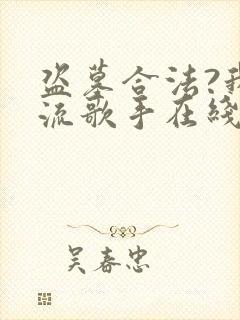 盗墓合法?我
流歌手在线
吴春忠